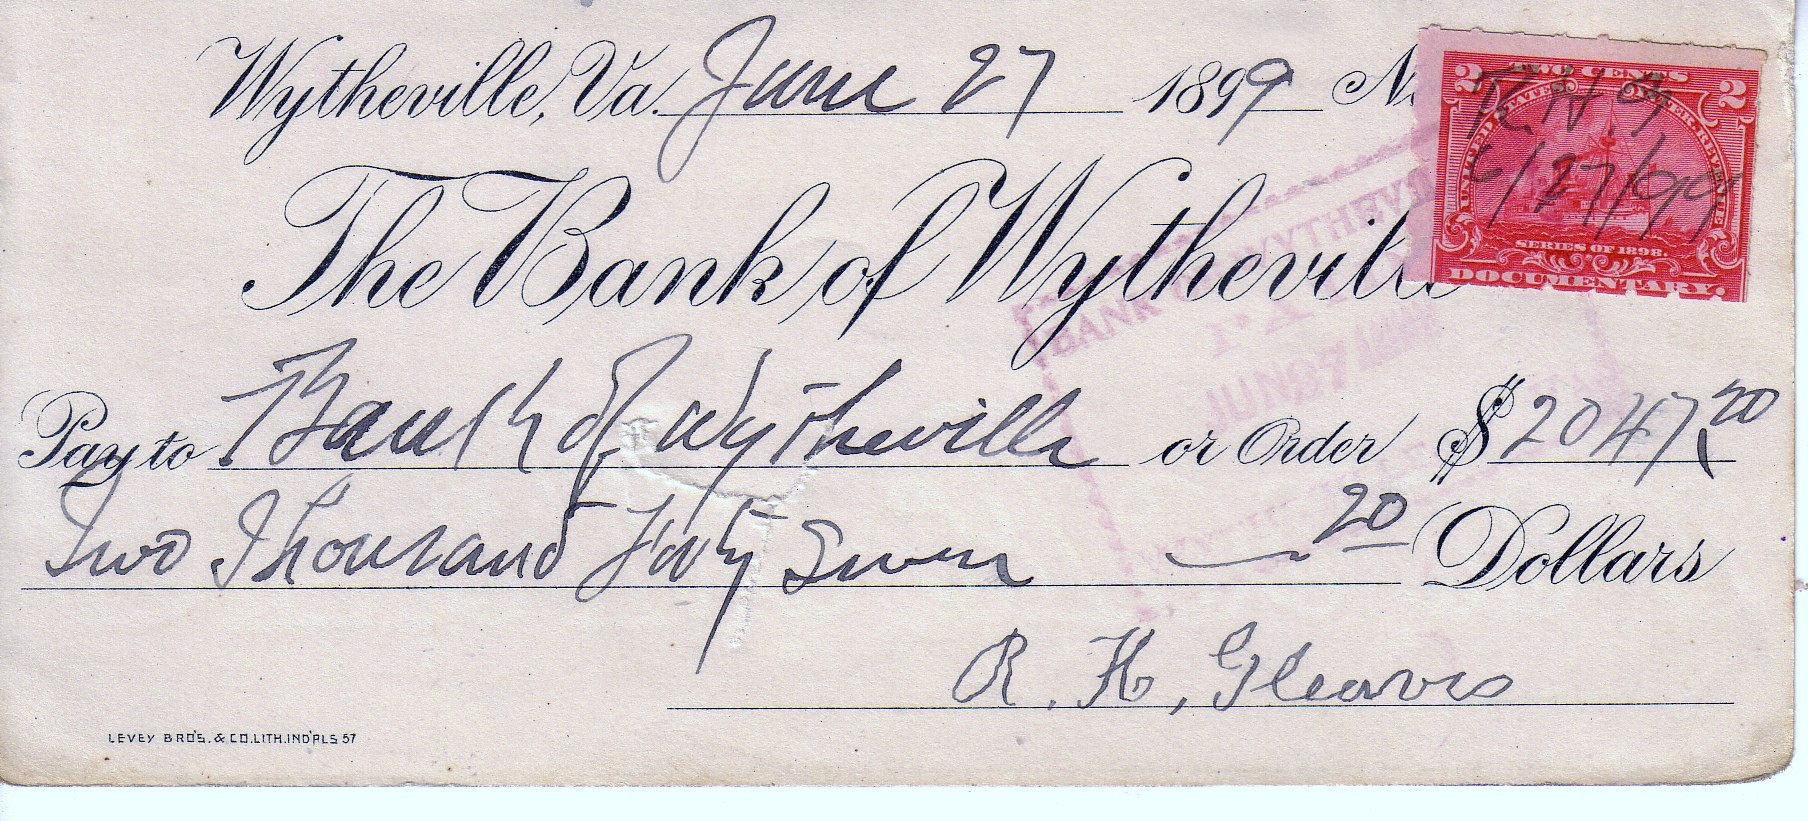 Wytheville, Va. June 27 1899 N
The Bank of Wytheville
Pay to Bank of Wytheville or Order $2047.20
Two Thousand Forty Seven — 20 Dollars
R. H. Gleaves
LEVEY BRO'S. & CO. LITH. IND'PLS 57
2 TWO CENTS 2
UNITED STATES INTER. REVENUE
R.H.G.
6/27/99
SERIES OF 1898.
DOCUMENTARY.
BANK WYTHEVILLE
PAID
JUN 27 1899